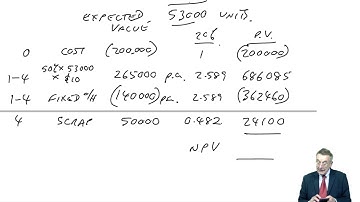 EXPECTED 53000 UNITS.
VALUE
20% P.V.
0 COST (200,000) 1 (200000)
50% x 53000
1-4 x $10 265000 p.a. 2.589 686085
1-4 FIXED O/H (140000) p.a. 2.589 (362460)
4 SCRAP 50000 0.482 24100
NPV